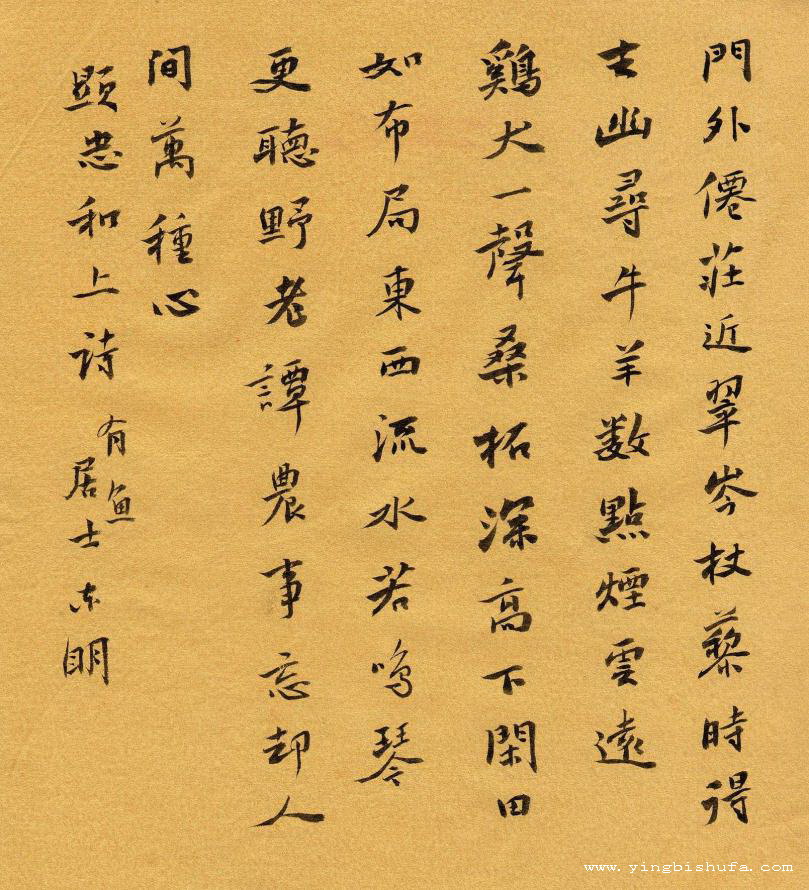 門外僊莊近翠岑杖藜時得
士幽尋牛羊数點煙雲遠
鷄犬一聲桑柘深高下閑田
如布局東西流水若鳴琴
更聽野老譚農事忘却人
间萬種心
顕忠和上诗
有魚
居士志明
www.yingbishufa.com